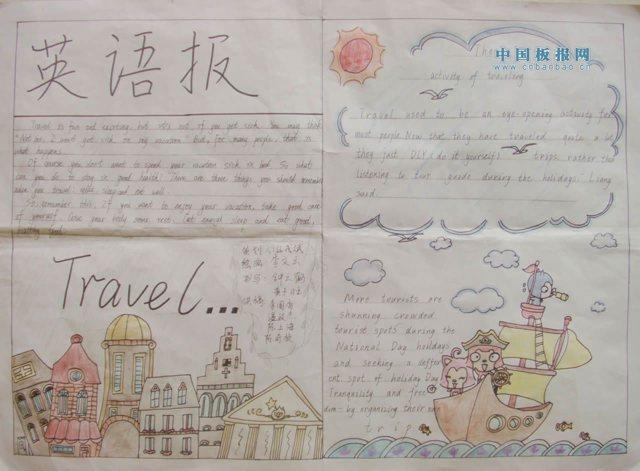 英语报
Travel is fun and exciting, but it's not if you get sick. You may think
"Not me, I won't get sick on my vacation." But, for many people, that is
what happens.
Of course you don't want to spend your vacation sick in bed. So what
can you do to stay in good health? There are three things you should remember
when you travel: relax, sleep and eat well.
So, remember this, If you want to enjoy your vacation, take good care
of yourself. Give your body some rest. Get enough sleep and eat good,
healthy food.
Travel...
The
中国板报网
www.cobanbao.cn
activity of traveling
Travel used to be an eye-opening activity for
most people. Now that they have traveled quite a bit
they just DIY (do it yourself) trips rather than
listening to tour guide during the holidays," Liang
said.
More tourists are
shunning crowded
tourist spots during the
National Day holidays
and seeking a differ
ent spot of holiday Day
Tranquility and free
dom-- by organizing their own
trip